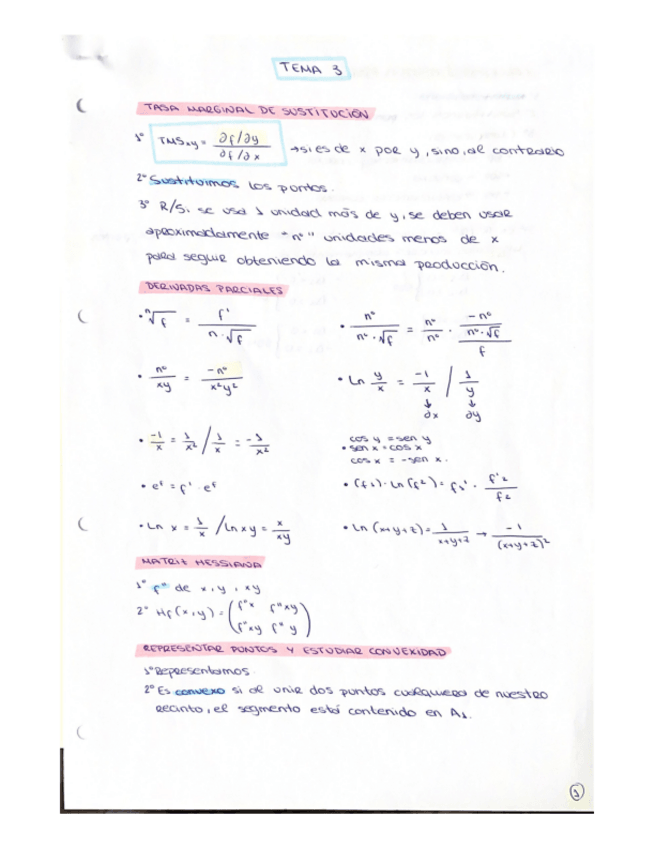 TEMA 3
TASA MARGINAL DE SUSTITUCIÓN
1º TMSxy = ∂f/∂y / ∂f/∂x → si es de x por y, sino, al contrario
2º Sustituimos los puntos.
3º R/Si se usa 1 unidad más de y, se deben usar
aproximadamente "nº" unidades menos de x
para seguir obteniendo la misma producción.
DERIVADAS PARCIALES
• ⁿ√f = f' / n·√f
• nº / nº·√f = nº/nº · (-nº / nº·√f) / f
• nº/xy = -nº/x²y²
• Ln y/x = -1/x / 1/y
↓ ↓
∂x ∂y
• -1/x = 1/x² / 1/x = -1/x²
cos y = sen y
• sen x = cos x
cos x = -sen x.
• eᶠ = f' · eᶠ
• (f1)·Ln(f2) = f1' · f'2/f2
• Ln x = 1/x / Ln xy = x/xy
• Ln (x+y+z) = 1/x+y+z → -1/(x+y+z)²
MATRIZ HESSIANA
1º f'' de x, y, xy
2º Hf(x,y) = (f''x f''xy
f''xy f''y)
REPRESENTAR PUNTOS Y ESTUDIAR CONVEXIDAD
1º Representamos.
2º Es convexo si al unir dos puntos cualquiera de nuestro
recinto, el segmento está contenido en A1.
1